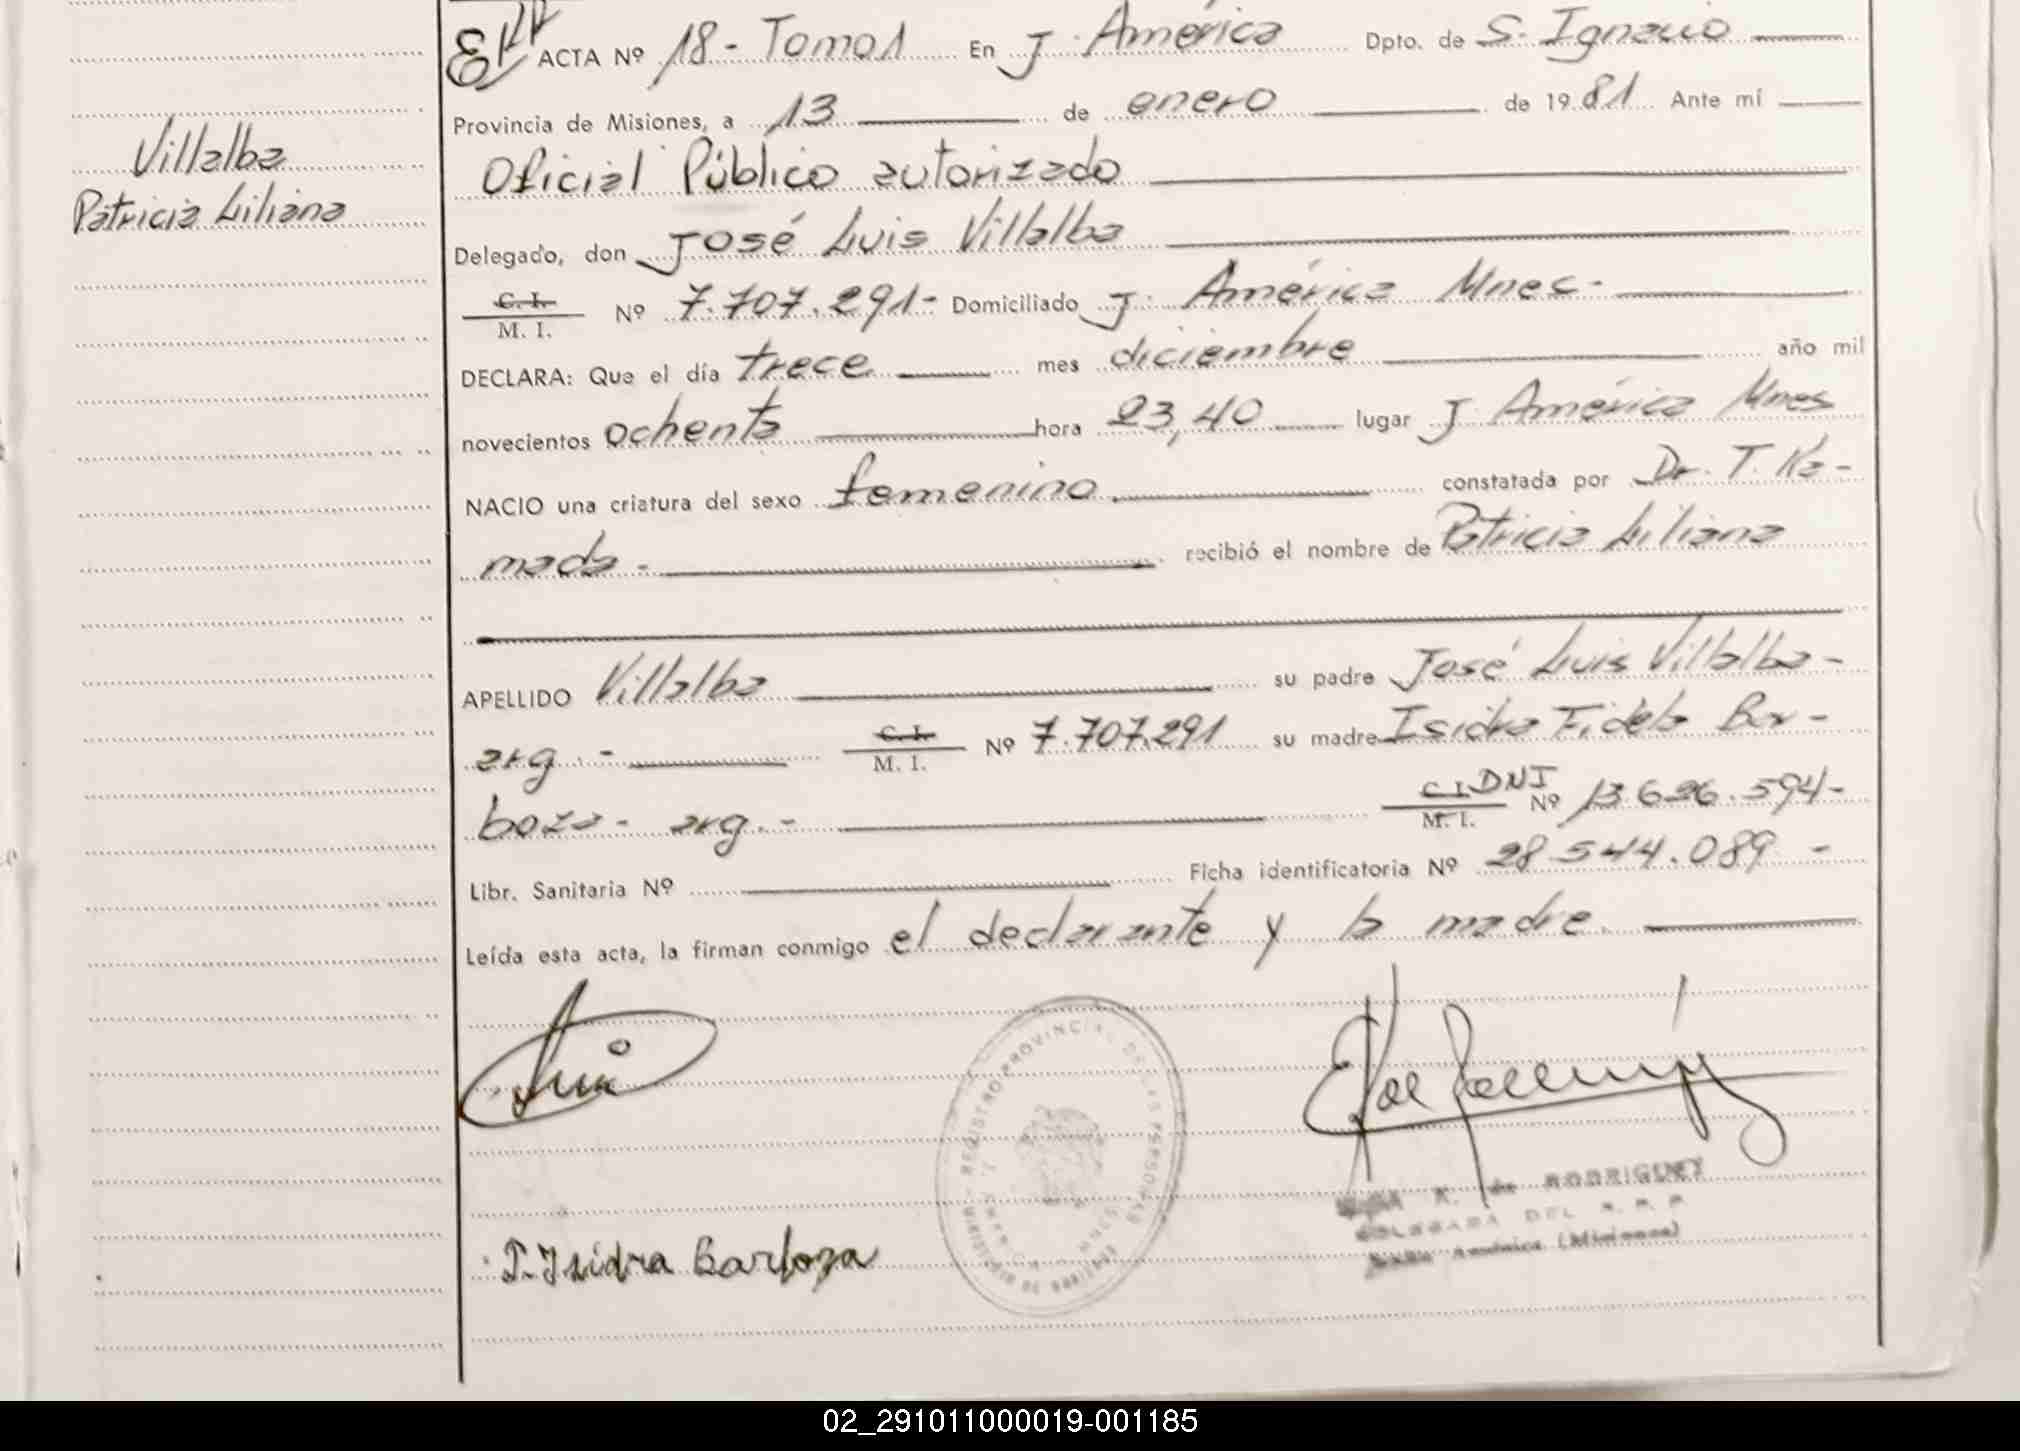 ACTA Nº 18 - Tomo 1 En J. América Dpto. de S. Ignacio
Provincia de Misiones, a 13 de enero de 1981 Ante mí
Villalba
Oficial Público autorizado
Patricia Liliana
Delegado, don José Luis Villalba
C. I.
M. I. Nº 7.707.291- Domiciliado J. América Mnes-
DECLARA: Que el día trece mes diciembre año mil
novecientos ochenta hora 23,40 lugar J. América Mnes
NACIO una criatura del sexo femenino. constatada por Dr. T. Ka-
mada - recibió el nombre de Patricia Liliana
APELLIDO Villalba su padre José Luis Villalba-
arg.- C. I. M. I. Nº 7.707.291 su madre Isidra Fidela Bar-
boza- arg.- C. I. DNI M. I. Nº 13.626.594-
Libr. Sanitaria Nº Ficha identificatoria Nº 28.544.089 -
Leída esta acta, la firman conmigo el declarante y la madre.
REGISTRO PROVINCIAL DE LAS PERSONAS
K. de RODRIGUEZ
DELEGADA DEL R. P. P.
América (Misiones)
Isidra Barboza
02_291011000019-001185